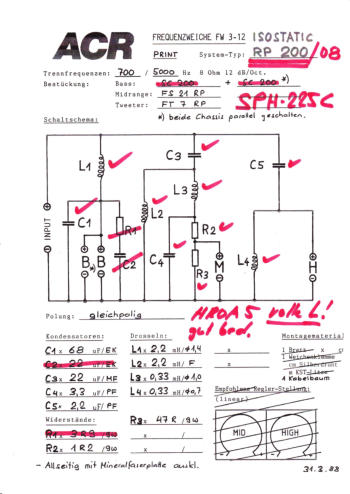 ACR
FREQUENZWEICHE FW 3-12 ISOSTATIC
PRINT System-Typ: RP 200/08
Trennfrequenzen: 700 / 5000 Hz 8 Ohm 12 dB/Oct.
Bestückung: Bass: SC 200 + SC 200 *)
Midrange: FS 21 RP
Tweeter: FT 7 RP
SPH-225C
*) beide Chassis paralel geschalten.
Schaltschema:
L1
C3
C5
L3
C1
R1
L2
R2
INPUT
B
*)
B
C2
C4
M
L4
H
R3
Polung: gleichpolig
Kondensatoren:
Drosseln:
Montagematerial
C1 = 68 uF/EK
L1 = 2,2 mH/φ1,4
C2 = 22 uF/EK
L2 = 2,2 mH/ F
C3 = 22 uF/MF
L3 = 0,33 mH/φ1,0
C4 = 3,3 uF/PF
L4 = 0,33 mH/φ0,7
C5 = 2,2 uF/PF
1 Kabelbaum
Empfohlene Regler-Stellung:
(linear)
Widerstände:
R3 = 47 R /9W
R1 = 3R3 /9W
R2 = 1R2 /9W
MID
HIGH
- Allseitig mit Mineralfaserplatte auskl.
31.3.88